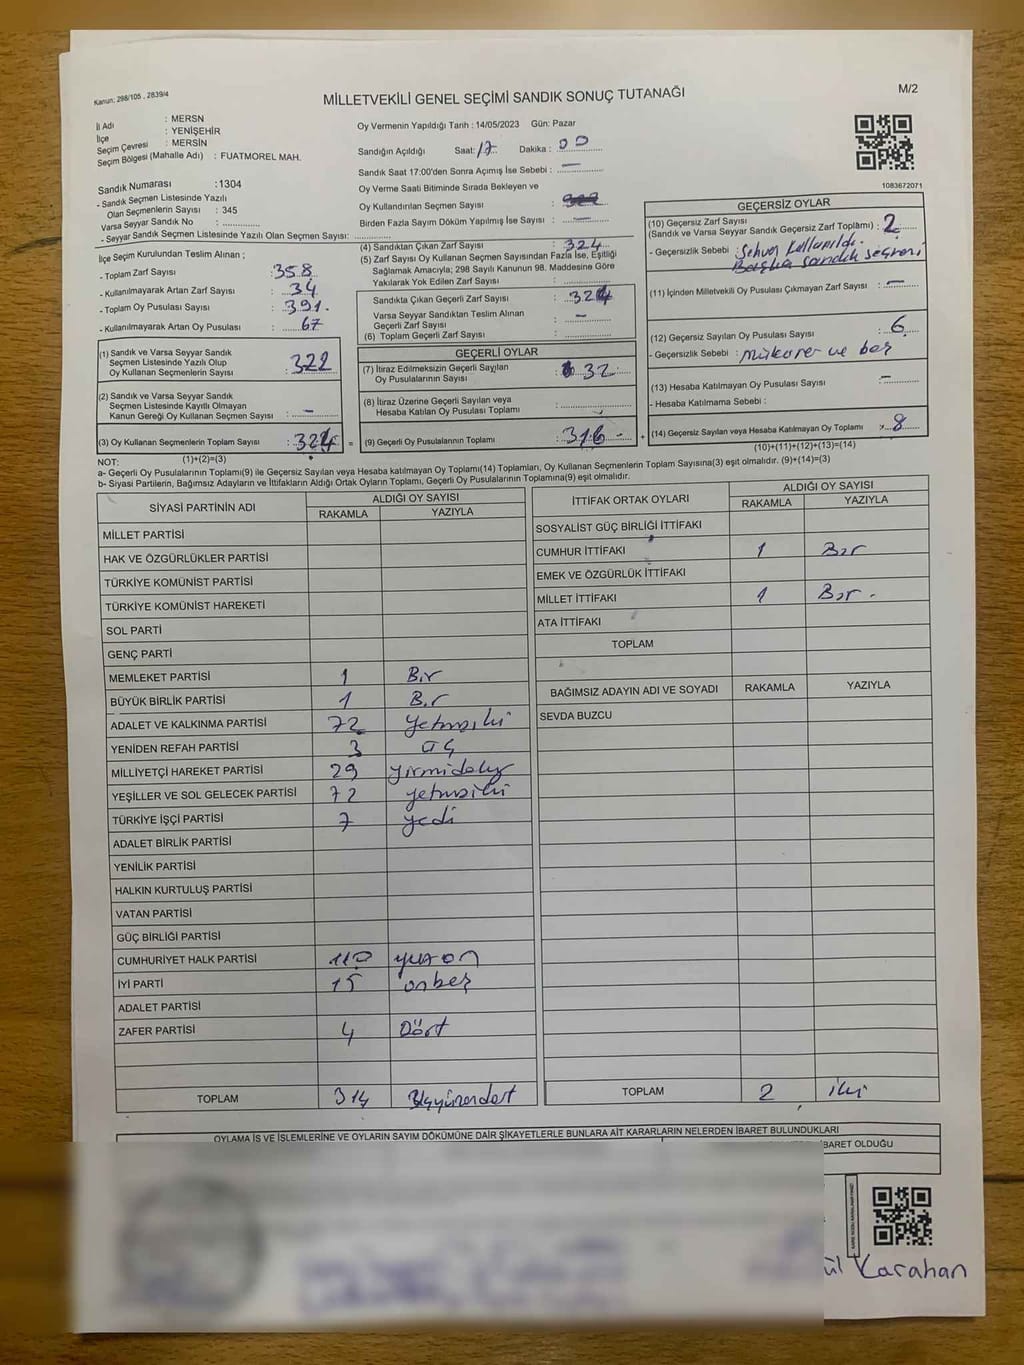 Kanun: 298/105 . 2839/4
MİLLETVEKİLİ GENEL SEÇİMİ SANDIK SONUÇ TUTANAĞI
M/2
İl Adı : MERSN
İlçe : YENİŞEHİR
Seçim Çevresi : MERSİN
Seçim Bölgesi (Mahalle Adı) : FUATMOREL MAH.
Sandık Numarası :1304
- Sandık Seçmen Listesinde Yazılı
Olan Seçmenlerin Sayısı : 345
Varsa Seyyar Sandık No :
- Seyyar Sandık Seçmen Listesinde Yazılı Olan Seçmen Sayısı:
Oy Vermenin Yapıldığı Tarih : 14/05/2023 Gün: Pazar
Sandığın Açıldığı Saat: 17 Dakika : 00
Sandık Saat 17:00'den Sonra Açımış İse Sebebi : —
Oy Verme Saati Bitiminde Sırada Bekleyen ve
Oy Kullandırılan Seçmen Sayısı :
Birden Fazla Sayım Döküm Yapılmış İse Sayısı : —
1083672071
İlçe Seçim Kurulundan Teslim Alınan ;
- Toplam Zarf Sayısı : 358
- Kullanılmayarak Artan Zarf Sayısı : 34
- Toplam Oy Pusulası Sayısı : 391.
- Kullanılmayarak Artan Oy Pusulası : 67
(1) Sandık ve Varsa Seyyar Sandık
Seçmen Listesinde Yazılı Olup
Oy Kullanan Seçmenlerin Sayısı : 322
(2) Sandık ve Varsa Seyyar Sandık
Seçmen Listesinde Kayıtlı Olmayan
Kanun Gereği Oy Kullanan Seçmen Sayısı : —
(3) Oy Kullanan Seçmenlerin Toplam Sayısı : 324 =
(1)+(2)=(3)
(4) Sandıktan Çıkan Zarf Sayısı : 324
(5) Zarf Sayısı Oy Kullanan Seçmen Sayısından Fazla İse, Eşitliği
Sağlamak Amacıyla; 298 Sayılı Kanunun 98. Maddesine Göre
Yakılarak Yok Edilen Zarf Sayısı :
Sandıkta Çıkan Geçerli Zarf Sayısı : 324
Varsa Seyyar Sandıktan Teslim Alınan
Geçerli Zarf Sayısı : —
(6) Toplam Geçerli Zarf Sayısı :
GEÇERLİ OYLAR
(7) İtiraz Edilmeksizin Geçerli Sayılan
Oy Pusulalarının Sayısı : 32
(8) İtiraz Üzerine Geçerli Sayılan veya
Hesaba Katılan Oy Pusulası Toplamı :
(9) Geçerli Oy Pusulalarının Toplamı : 316 - +
GEÇERSİZ OYLAR
(10) Geçersiz Zarf Sayısı
(Sandık ve Varsa Seyyar Sandık Geçersiz Zarf Toplamı) : 2
- Geçersizlik Sebebi : Sehven Kullanıldı.
Başka sandık seçmeni
(11) İçinden Milletvekili Oy Pusulası Çıkmayan Zarf Sayısı : —
(12) Geçersiz Sayılan Oy Pusulası Sayısı : 6
- Geçersizlik Sebebi : mükerrer ve boş
(13) Hesaba Katılmayan Oy Pusulası Sayısı : —
- Hesaba Katılmama Sebebi :
(14) Geçersiz Sayılan veya Hesaba Katılmayan Oy Toplamı : 8
(10)+(11)+(12)+(13)=(14)
NOT:
a- Geçerli Oy Pusulalarının Toplamı(9) ile Geçersiz Sayılan veya Hesaba katılmayan Oy Toplamı(14) Toplamları, Oy Kullanan Seçmenlerin Toplam Sayısına(3) eşit olmalıdır. (9)+(14)=(3)
b- Siyasi Partilerin, Bağımsız Adayların ve İttifakların Aldığı Ortak Oyların Toplamı, Geçerli Oy Pusulalarının Toplamına(9) eşit olmalıdır.
SİYASİ PARTİNİN ADI
ALDIĞI OY SAYISI
RAKAMLA YAZIYLA
MİLLET PARTİSİ
HAK VE ÖZGÜRLÜKLER PARTİSİ
TÜRKİYE KOMÜNİST PARTİSİ
TÜRKİYE KOMÜNİST HAREKETİ
SOL PARTİ
GENÇ PARTİ
MEMLEKET PARTİSİ 1 Bir
BÜYÜK BİRLİK PARTİSİ 1 Bir
ADALET VE KALKINMA PARTİSİ 72 yetmişiki
YENİDEN REFAH PARTİSİ 3 üç
MİLLİYETÇİ HAREKET PARTİSİ 29 yirmidokuz
YEŞİLLER VE SOL GELECEK PARTİSİ 72 yetmişiki
TÜRKİYE İŞÇİ PARTİSİ 7 yedi
ADALET BİRLİK PARTİSİ
YENİLİK PARTİSİ
HALKIN KURTULUŞ PARTİSİ
VATAN PARTİSİ
GÜÇ BİRLİĞİ PARTİSİ
CUMHURİYET HALK PARTİSİ 110 yüzon
İYİ PARTİ 15 onbeş
ADALET PARTİSİ
ZAFER PARTİSİ 4 Dört
TOPLAM 314 Üçyüzondört
İTTİFAK ORTAK OYLARI
ALDIĞI OY SAYISI
RAKAMLA YAZIYLA
SOSYALİST GÜÇ BİRLİĞİ İTTİFAKI
CUMHUR İTTİFAKI 1 Bir
EMEK VE ÖZGÜRLÜK İTTİFAKI
MİLLET İTTİFAKI 1 Bir -
ATA İTTİFAKI
TOPLAM
BAĞIMSIZ ADAYIN ADI VE SOYADI RAKAMLA YAZIYLA
SEVDA BUZCU
TOPLAM 2 iki
OYLAMA İŞ VE İŞLEMLERİNE VE OYLARIN SAYIM DÖKÜMÜNE DAİR ŞİKAYETLERLE BUNLARA AİT KARARLARIN NELERDEN İBARET BULUNDUKLARI
İBARET OLDUĞU
ül Karahan